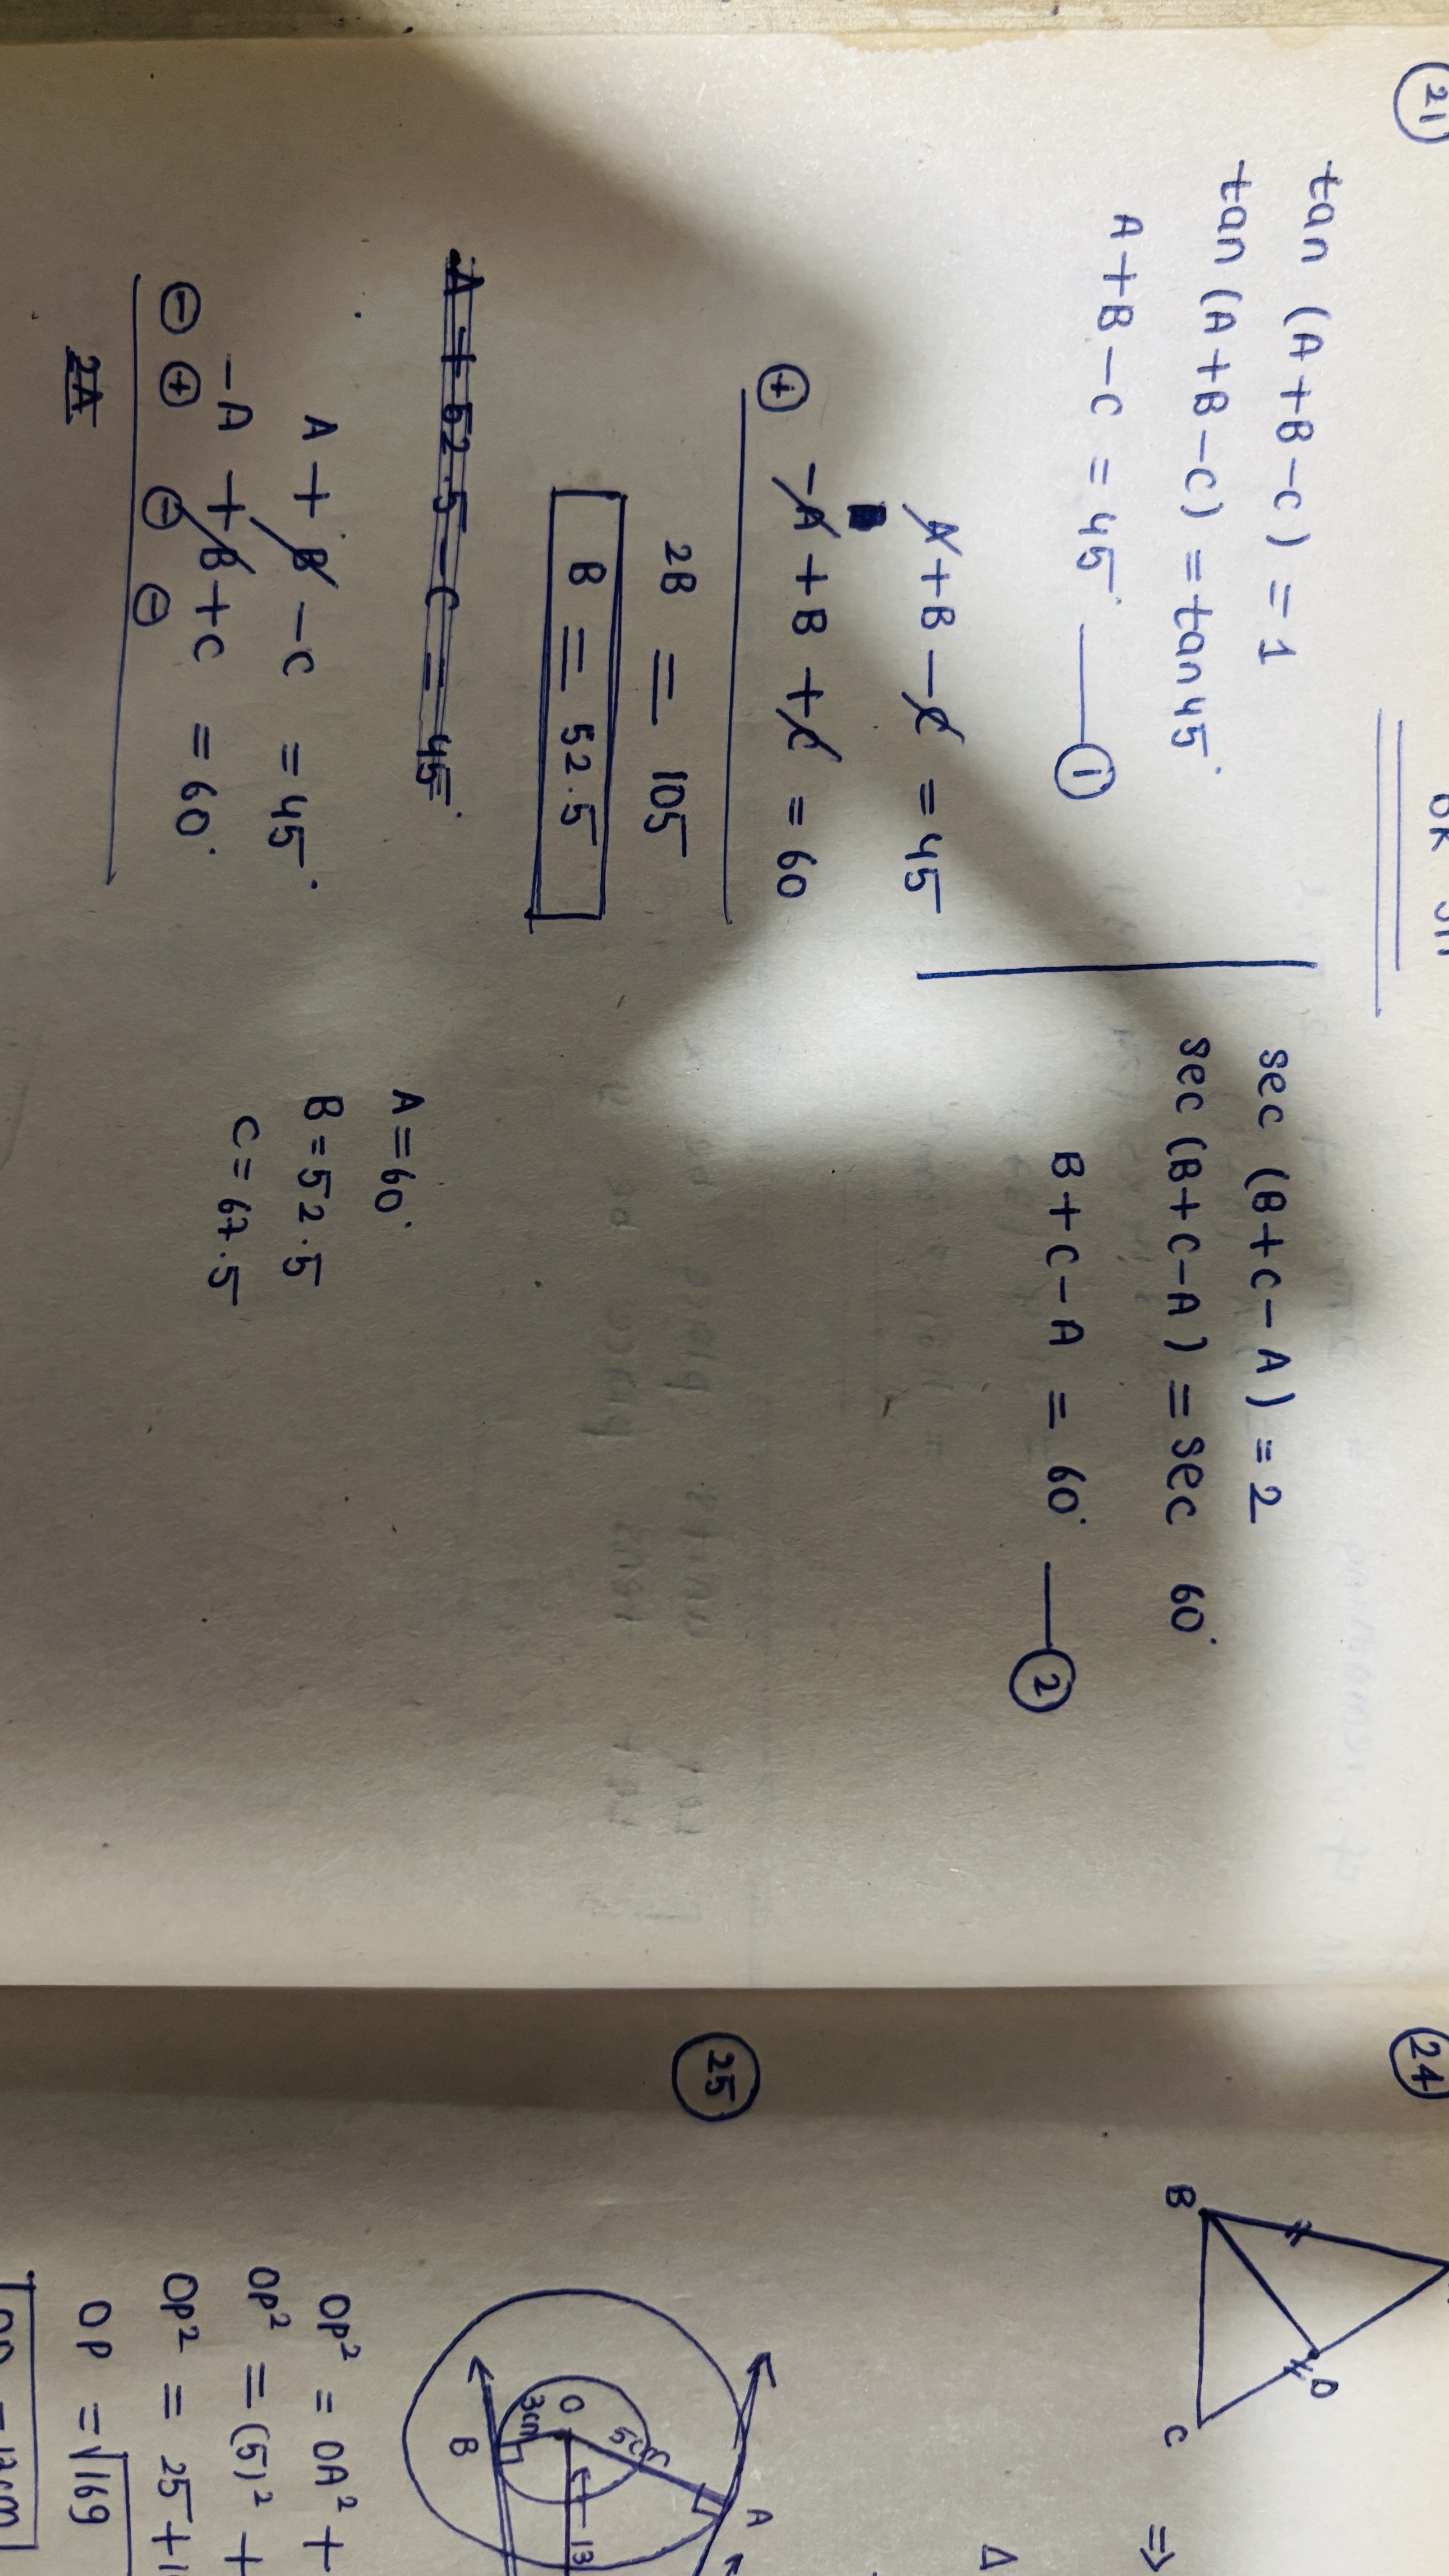 OR
21
tan (A+B-C) = 1
tan (A+B-C) = tan 45°
A+B-C = 45° ——— 1
sec (B+C-A) = 2
sec (B+C-A) = sec 60°
B+C-A = 60° ——— 2
A+B-C = 45
⊕ -A+B+C = 60
2B = 105
B = 52.5
A + 52.5 - C = 45°
A + B - C = 45°
-A + B + C = 60°
⊖ ⊕ ⊖ ⊖
2A
A = 60°
B = 52.5
C = 67.5
24
B
D
C
⇒
Δ
25
A
O
5cm
3cm
B
13
OP² = OA² +
OP² = (5)² +
OP² = 25 + 1
OP = √169